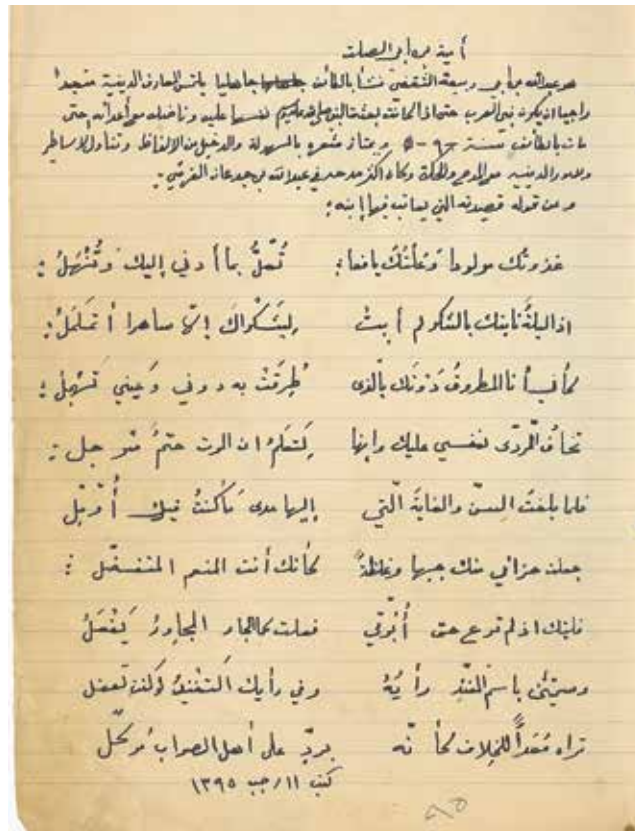 أمية بن أبي الصلت
هو عبدالله بن أبي ربيعة الثقفي نشأ بالطائف جاهليا يلتمس المعارف الدينية متعبدا
راجيا ان يكون نبي العرب حتى اذا كانت بعثة النبي صلى الله عليه وسلم نفسها عليه وناضله مع أعدائه حتى
مات بالطائف سنة ٩ هـ ويمتاز شعره بالسهولة والدخيل من الالفاظ وتناول الاساطير
والامور الدينية مع المدح والحكمة وكان اكثر مدحه في عبدالله بن جدعان القرشي .
ومن قوله قصيدته التي يعاتب فيها إبنه :
غذوتك مولودا وَعُلتُكَ يافعا : تُعَلُّ بما أدني إليك وَتُنْهَلُ :
اذا ليلةٌ نابتك بالشكو لم أبِتْ لِشَكْواكَ إلّا ساهرا أتململُ :
كأني أنا المطروقُ دُوْنَك بالّذي طُرِقْتَ به دوني وَعيني تَهْمِلُ :
تخافُ الرّدى نفسي عليك وإنها لَتَعْلَمُ ان الموت حتمٌ مؤجل :
فلما بلغتَ السِنّ والغايةَ الّتي إليها مدى مَا كُنتُ فيك أُؤَمِّل
جعلت جزائي منك جبها وغلظةً كأنك أنت المنعم المتفضل :
فليتك اذ لم ترع حق أُبُوّتي فعلت كما الجار المجاورُ يَفْعَلُ
وسميتني باسم المفنّدِ رأيُهُ وفي رأيك التفنيدُ لو كنت تعقل
تراه مُعَدّاً للخلاف كأنّه بردٍّ على أهل الصواب مُوكلّ
كتب ١١ / رجب ١٣٩٥
٨٥